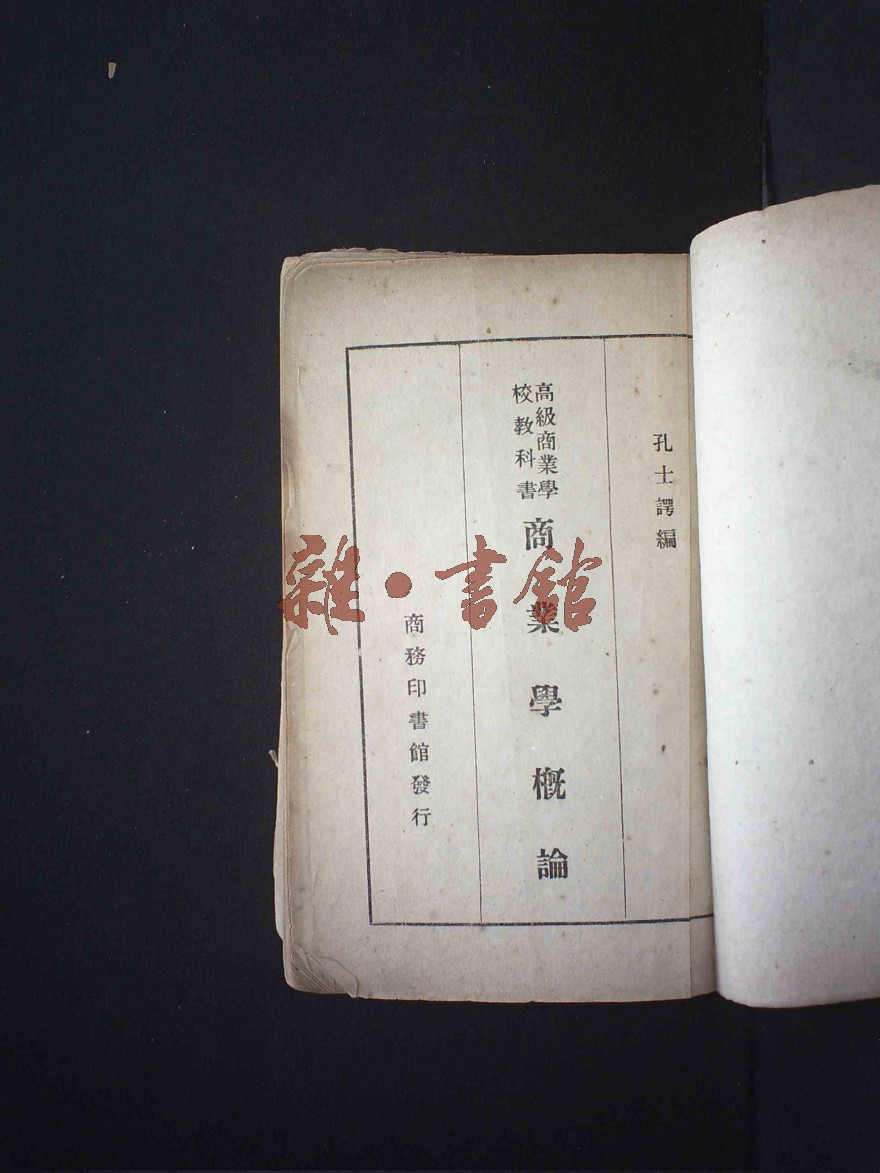 孔士諤編
高級商業學
校教科書
商業學概論
商務印書館發行
雜·書館